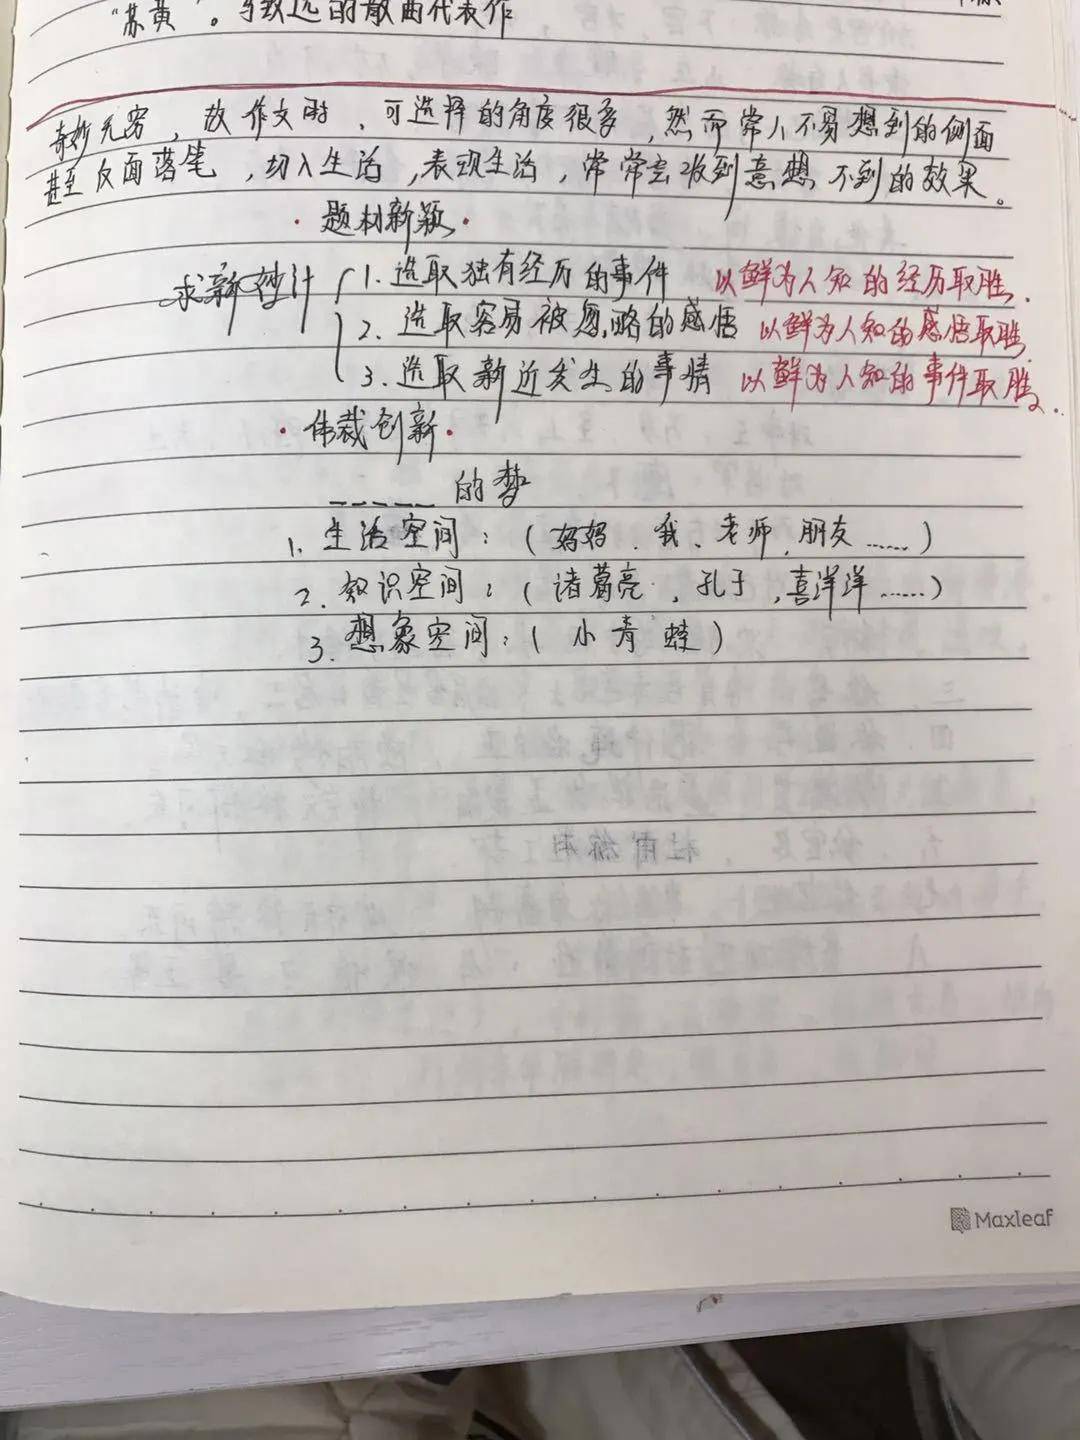 “苏黄”。马致远的散曲代表作
奇妙无穷，故作文时、可选择的角度很多，然而常人不易想到的侧面
甚至反面落笔，切入生活，表现生活，常常会收到意想不到的效果。
·题材新颖·
求新妙计 1.选取独有经历的事件 以鲜为人知的经历取胜.
2.选取容易被忽略的感悟 以鲜为人知的感悟取胜.
3.选取新近发生的事情 以鲜为人知的事件取胜.
·伟裁创新·
_____的梦
1.生活空间：（妈妈、我、老师、朋友……）
2.知识空间：（诸葛亮，孔子，喜洋洋……）
3.想象空间：（小青蛙）
Maxleaf